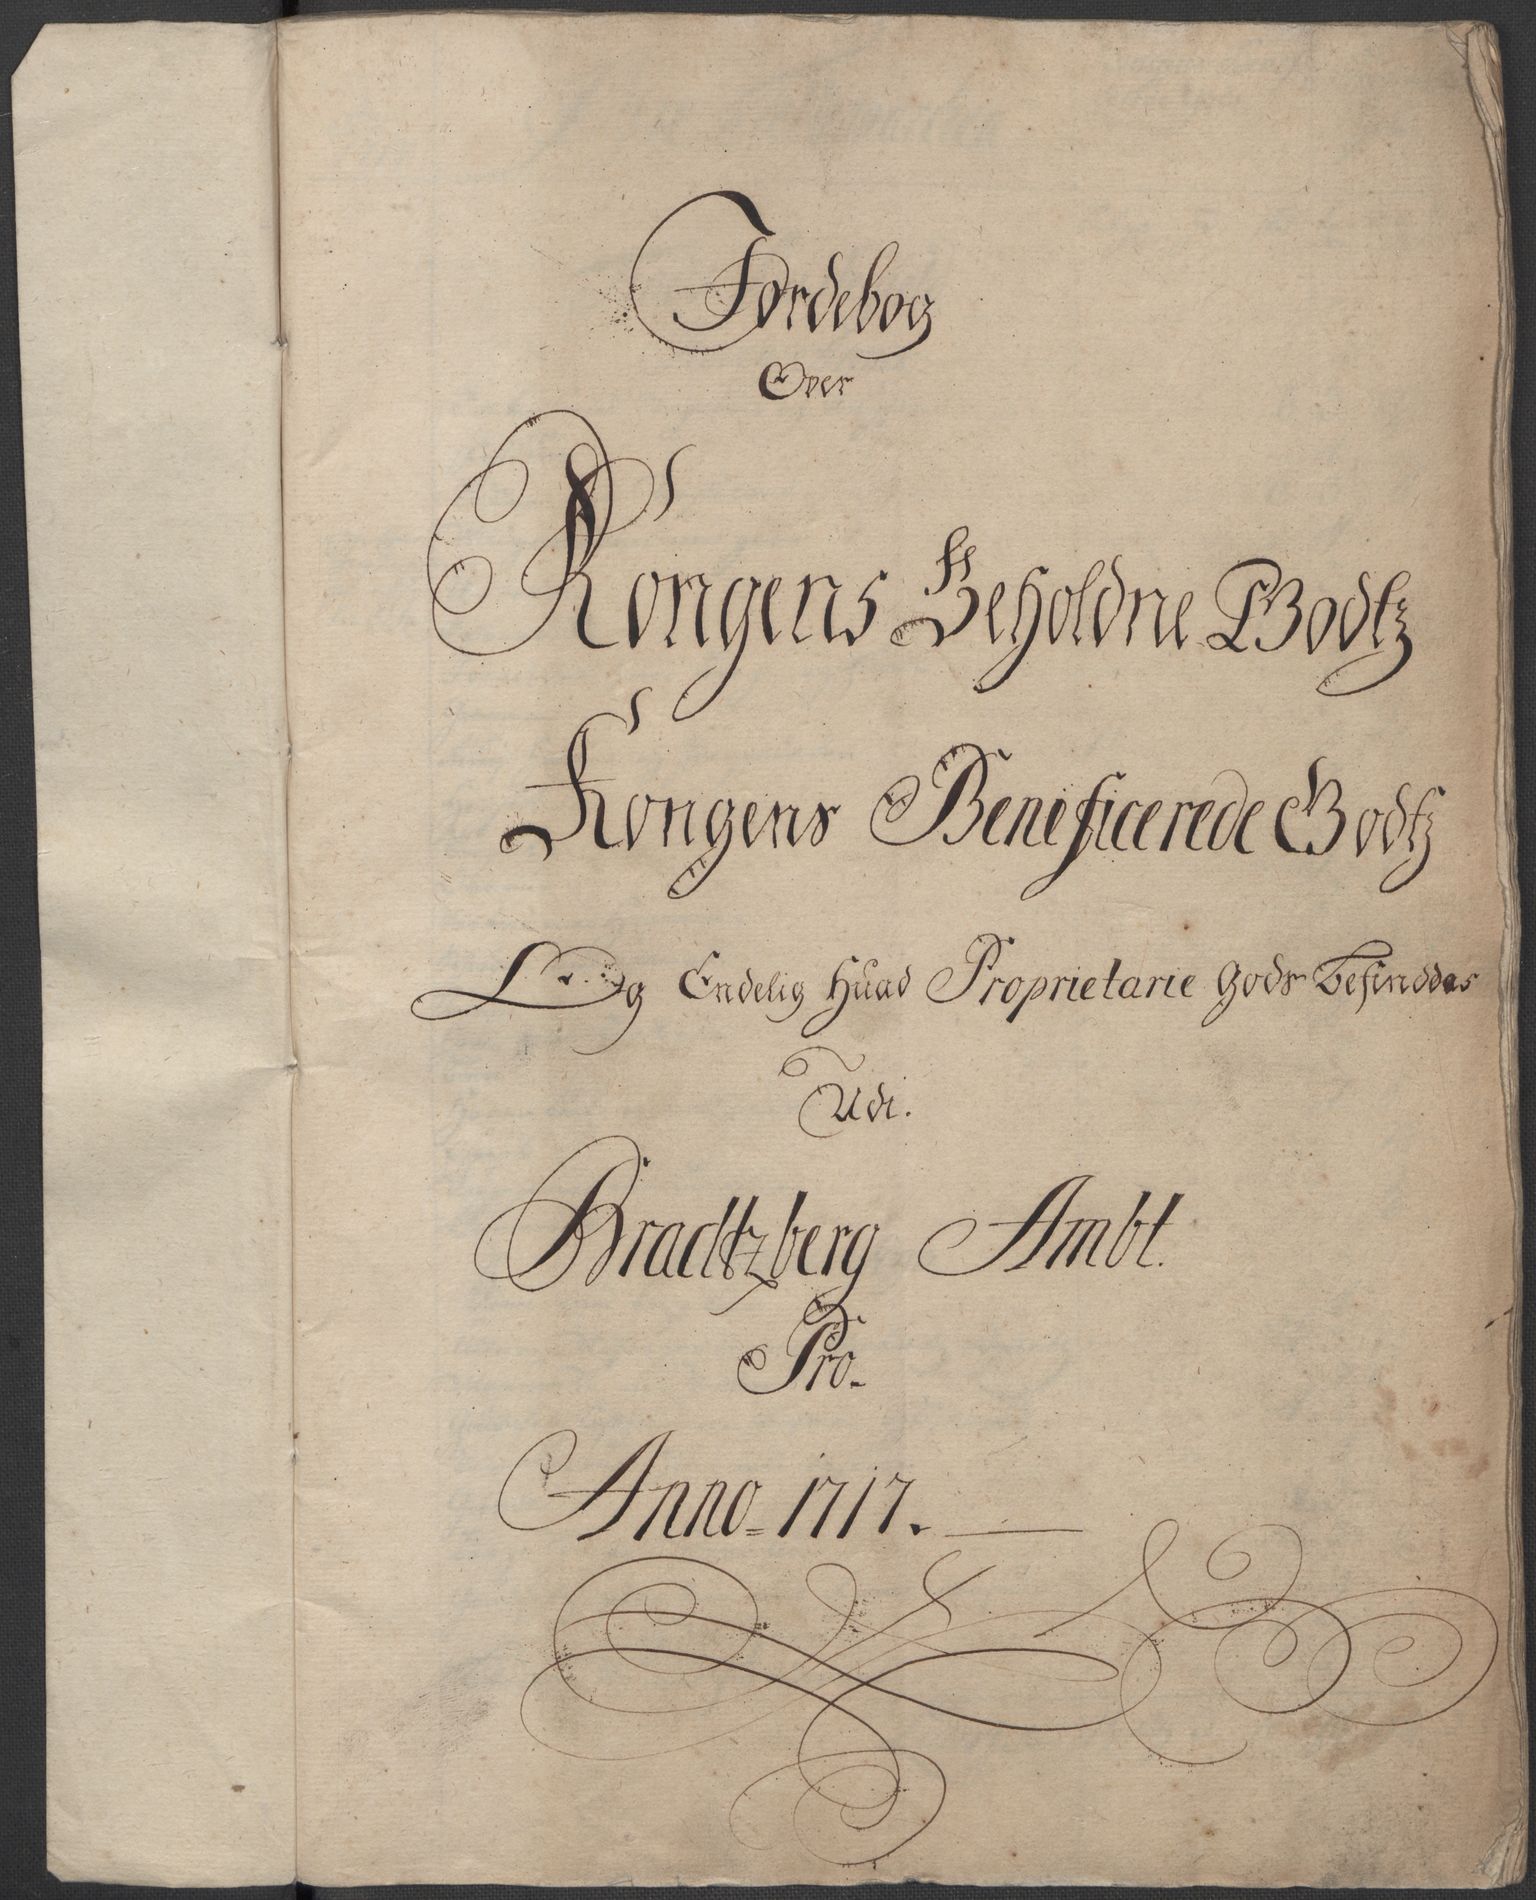 Jordebog
Over
Kongens Beholdne Godtz
Kongens Beneficerede Godtz
Og Endelig Huad Proprietarie Gods Befinddes
Udi.
Bradtzberg Ambt.
Pro.
Anno = 1717.